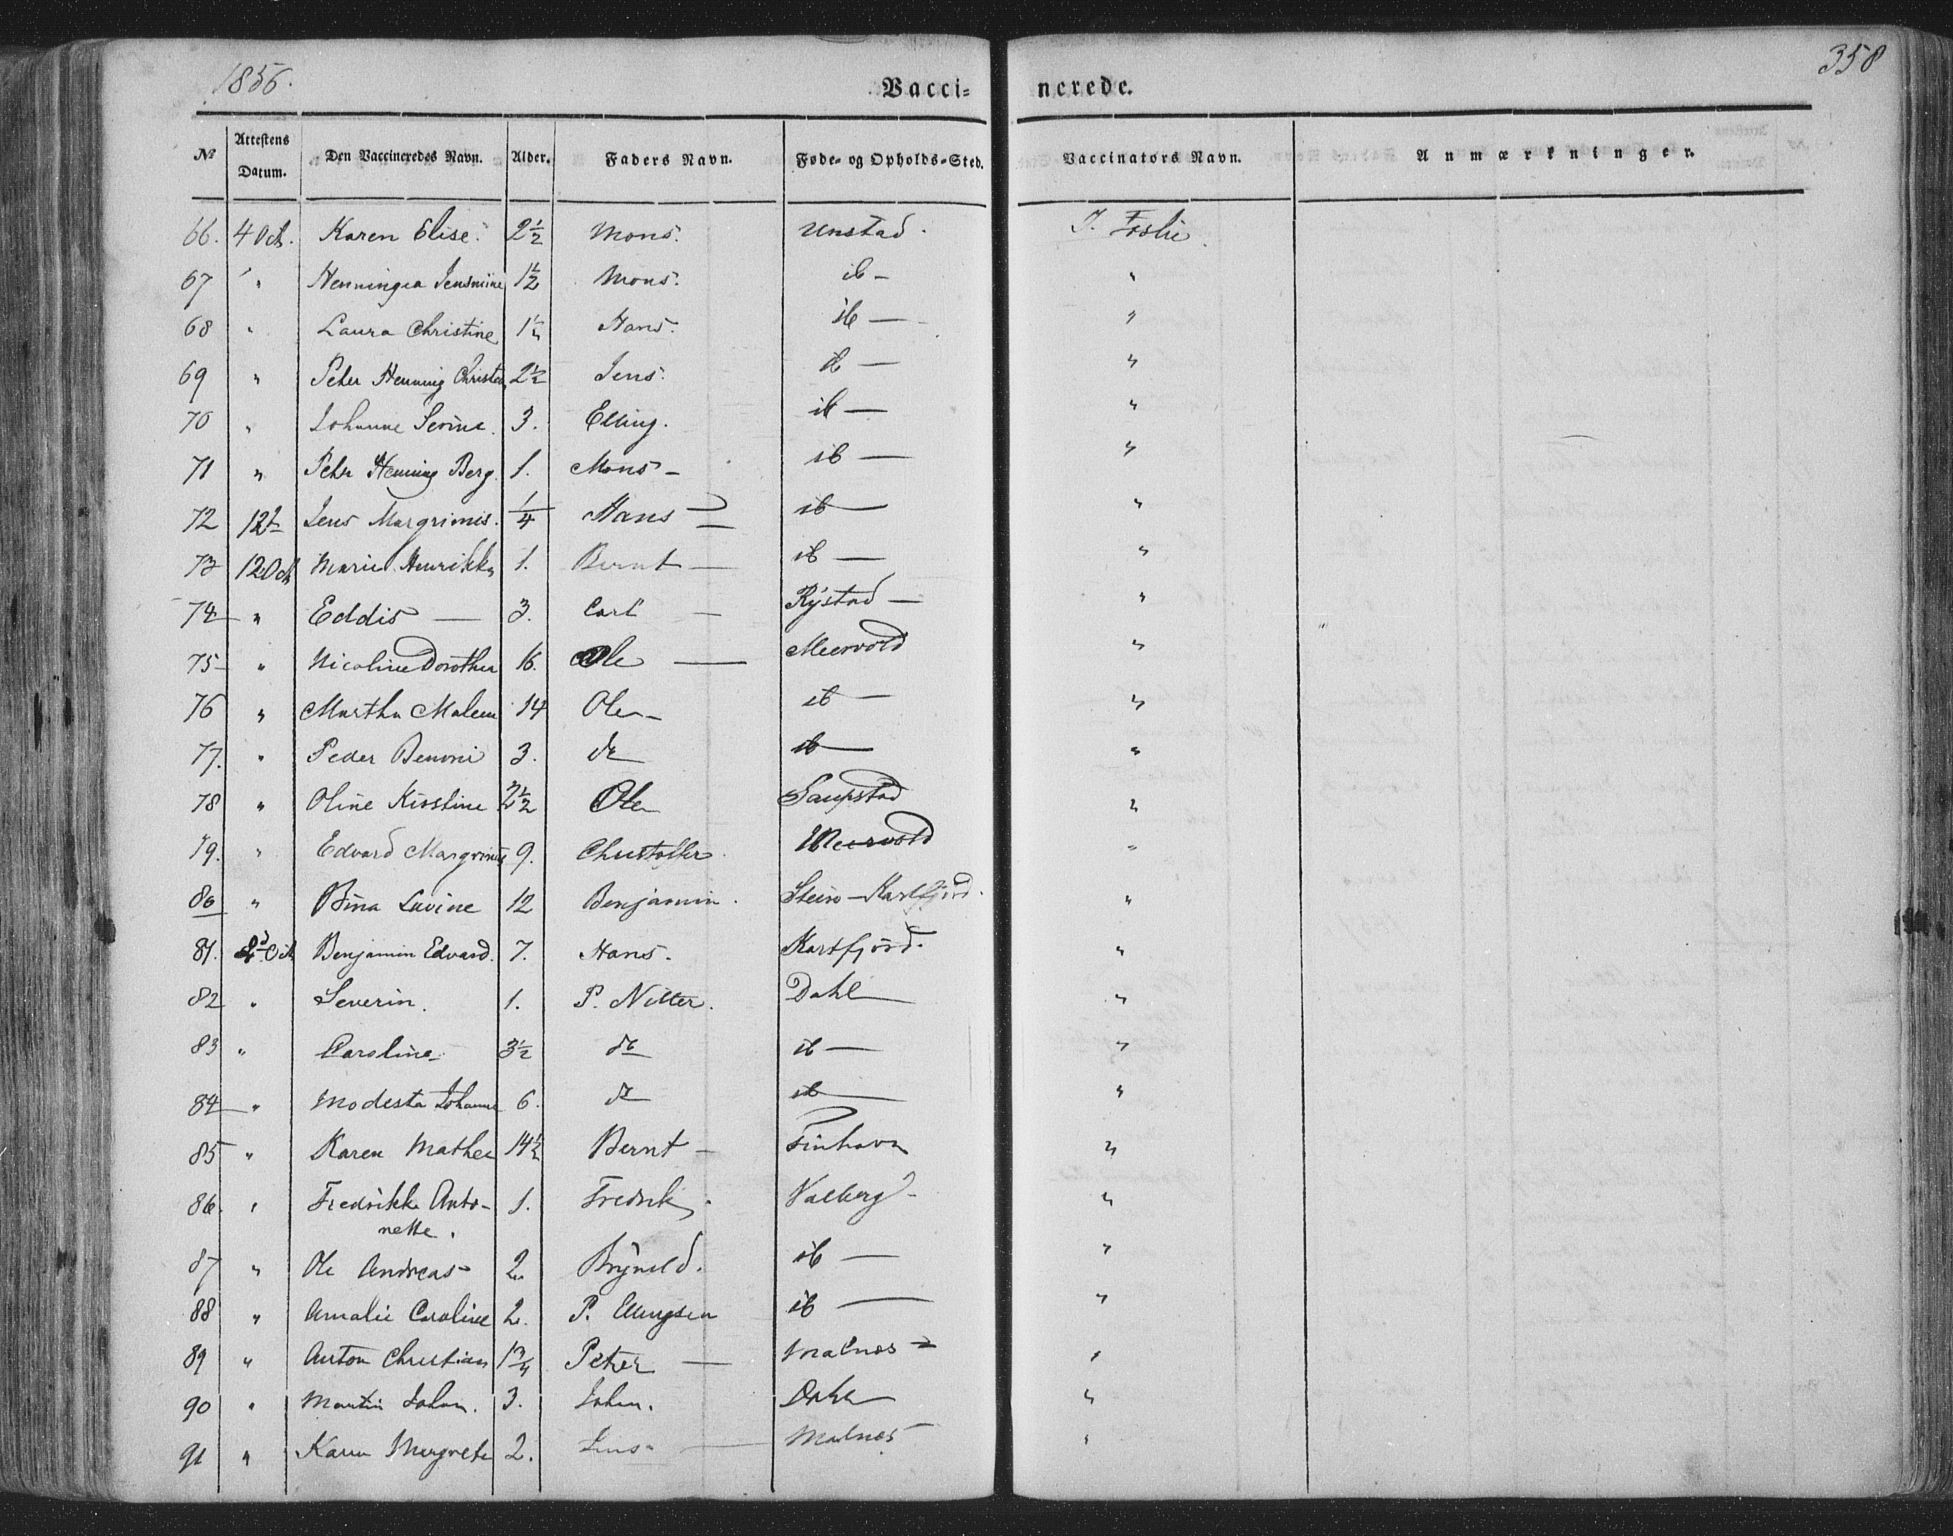 1856.
Vacci-nerede.
358
No Attestens Datum. Den Vaccineredes Navn. Alder. Faders Navn. Føde- og Opholds-Sted. Vaccinators Navn. Anmærkninger.
66. 4 Oct. Karen Elise. 2½ Mons. Unstad. J. Foslie.
67 " Henningea Jensmine 1½ Mons. ib — "
68 " Laura Christine 1½ Hans. ib — "
69 " Peter Henning Christen 2½ Jens. ib — "
70 " Johanne Serine. 3. Elling. ib — "
71 " Peter Henning Berg. 1. Mons — ib — "
72 12t Jens Margrinus. ¼ Hans — ib — "
73 12 Oct Marie Henrikke 1. Bernt — ib — "
74 " Eddis — 3. Carl — Rystad — "
75 " Nicoline Dorothea 16. Ole — Meervold "
76 " Martha Malene 14 Ole — ib — "
77. " Peder Benoni 3. do ib — "
78 " Oline Kirstine 2½ Ole Saupstad "
79. " Edvard Margrinus 9. Christoffer. Meervold "
80 " Bina Lavine 12 Benjamin. Steine — Kartfjord. "
81. Oct Benjamin Edvard. 7. Hans. Kartfjord. "
82 " Severin. 1. P. Nitter. Dahl "
83 " Caroline. 3½ do ib — "
84 " Modesta Johanne 6. do ib — "
85 " Karen Mathea 14½ Bernt — Finhavn "
86. " Fredrikke Anto- 1. Fredrik. Valberg — "
nette.
87 " Ole Andreas 2. Brynild. ib — "
88 " Amalie Caroline 2. P. Ellingsen ib — "
89 " Anton Christian 1¾ Peter — Malnes "
90 " Martin Johan. 3. Johan. Dahl "
91 " Karen Margrete 2. Jens — Malnes "